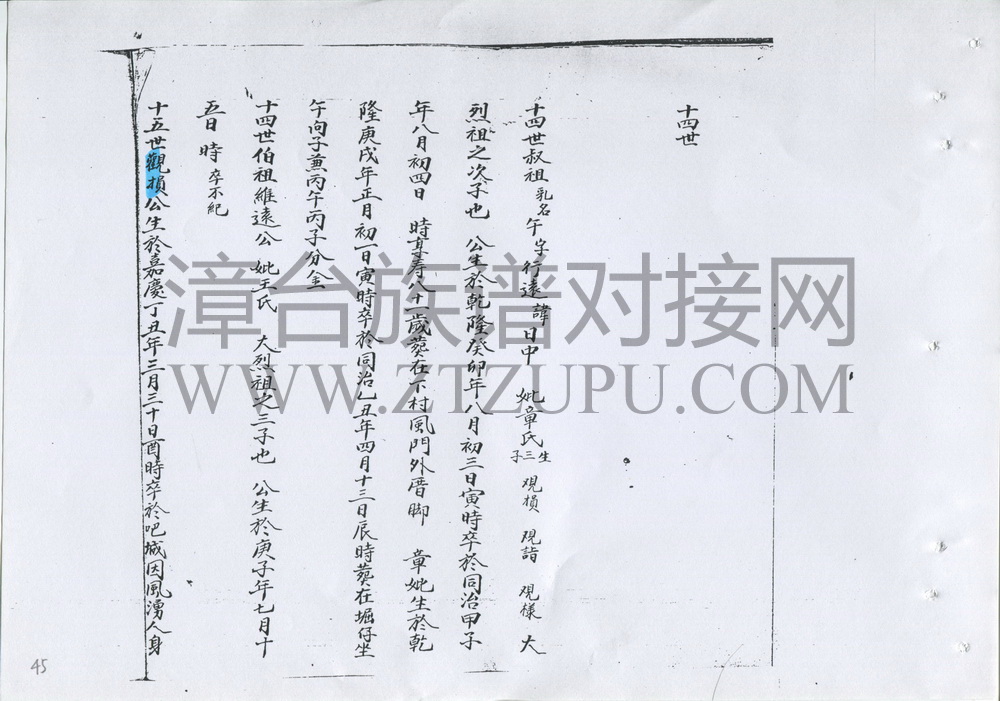 十四世
十四世叔祖乳名午字行遠諱日中 妣章氏生三子 観損 観詣 観樣 大
烈祖之次子也 公生於乾隆癸卯年八月初三日寅時卒於同治甲子
年八月初四日 時享壽八十一歲葬在下村風門外厝脚 章妣生於乾
隆庚戌年正月初一日寅時卒於同治乙丑年四月十三日辰時葬在堀仔坐
午向子兼丙午丙子分金
十四世伯祖維遠公 妣王氏 大烈祖之三子也 公生於庚子年七月十
五日 時 卒不紀
十五世觀損公生於嘉慶丁丑年三月三十日酉時卒於吧城因風湧人身
漳台族谱对接网
WWW.ZTZUPU.COM
45